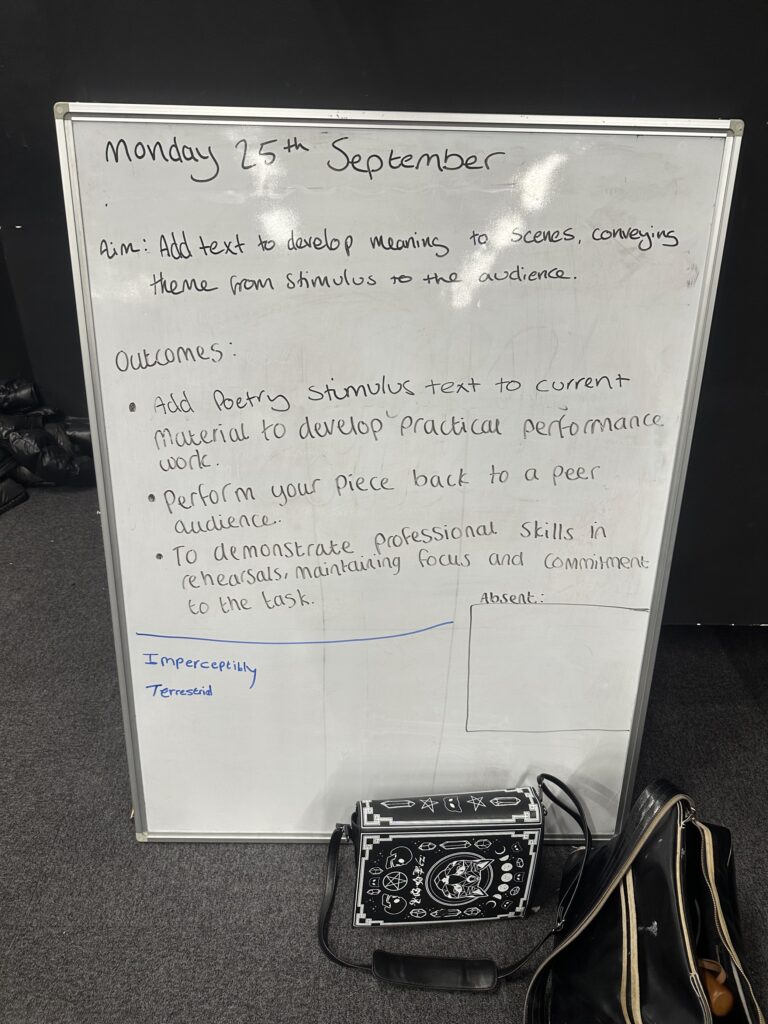 Monday 25th September
Aim: Add text to develop meaning to scenes, conveying
theme from stimulus to the audience.
Outcomes:
• Add Poetry stimulus text to current
material to develop practical performance
work.
• Perform your piece back to a peer
audience.
• To demonstrate professional skills in
rehearsals, maintaining focus and commitment
to the task.
Absent:
Imperceptibly
Terrestrial